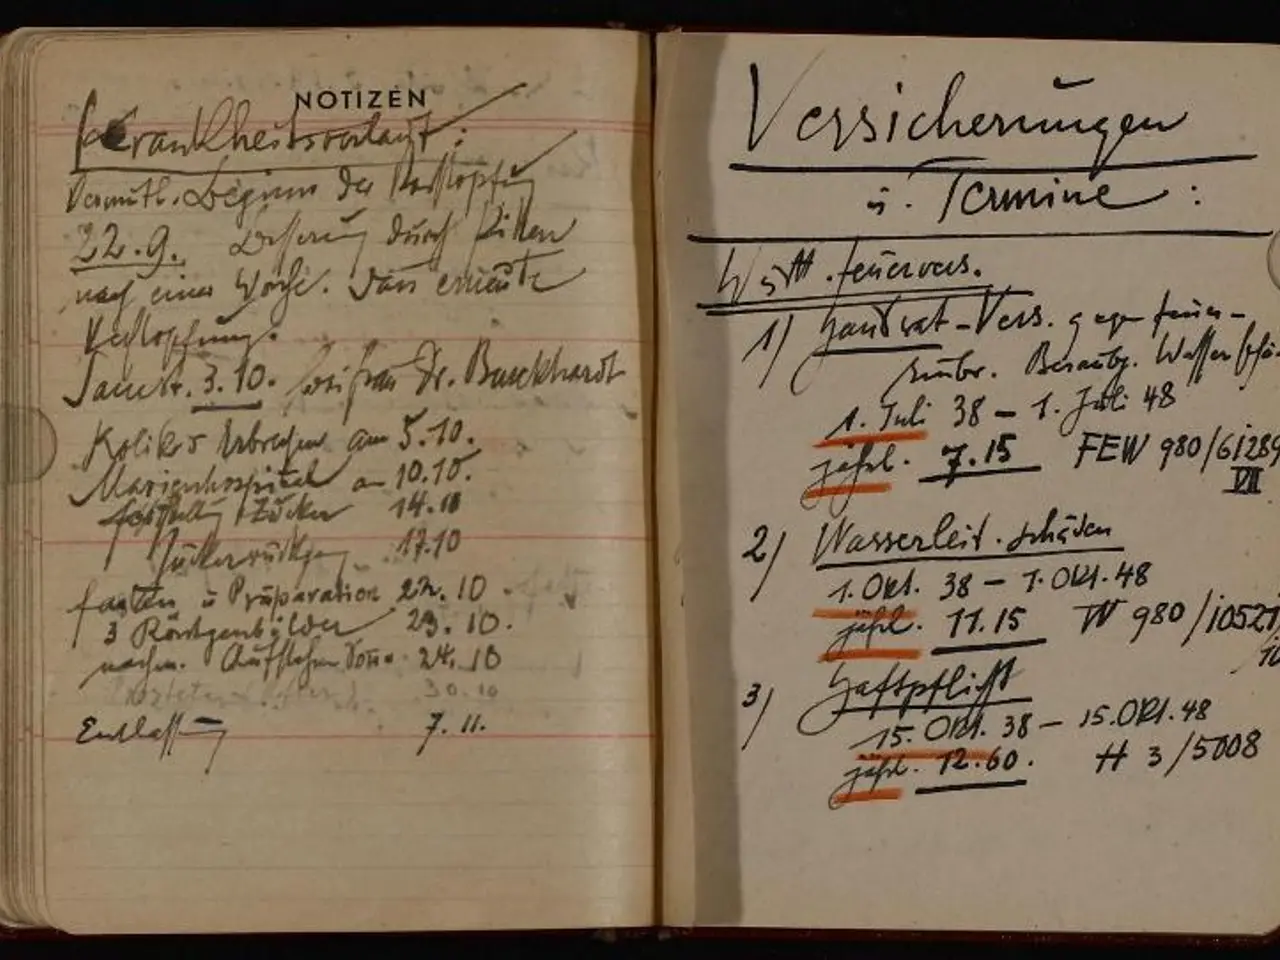 NOTIZEN
Krankheitsverlauf :
Vermutl. Beginn der Verstopfung
22.9. Besserung durch Pillen
nach einer Woche. Dann erneute
Verstopfung.
3.10. bei Frau Dr. Burckhardt
Kolik u Erbrechen am 5.10.
Marienhospital am 10.10.
Feststellung Zucker 14.10
Zuckerrückgang 17.10
fasten u Präparation 22.10
3 Röntgenbilder 23.10.
nachm. Aufstehen 24.10
30.10
Entlassung 7.11.
Versicherungen
u. Termine :
Württ. Feuervers.
1) Hausrat-Vers. gegen Feuer-
Einbr. Beraubg. Wasserschä
1. Juli 38 – 1. Juli 48
jährl. 7.15 FEW 980/61289
VII
2) Wasserleit. schäden
1. Okt. 38 – 1. Okt. 48
jährl. 11.15 W 980/10521/
10
3) Haftpflicht
15. Okt. 38 – 15. Okt. 48
jährl. 12.60. H 3/5008